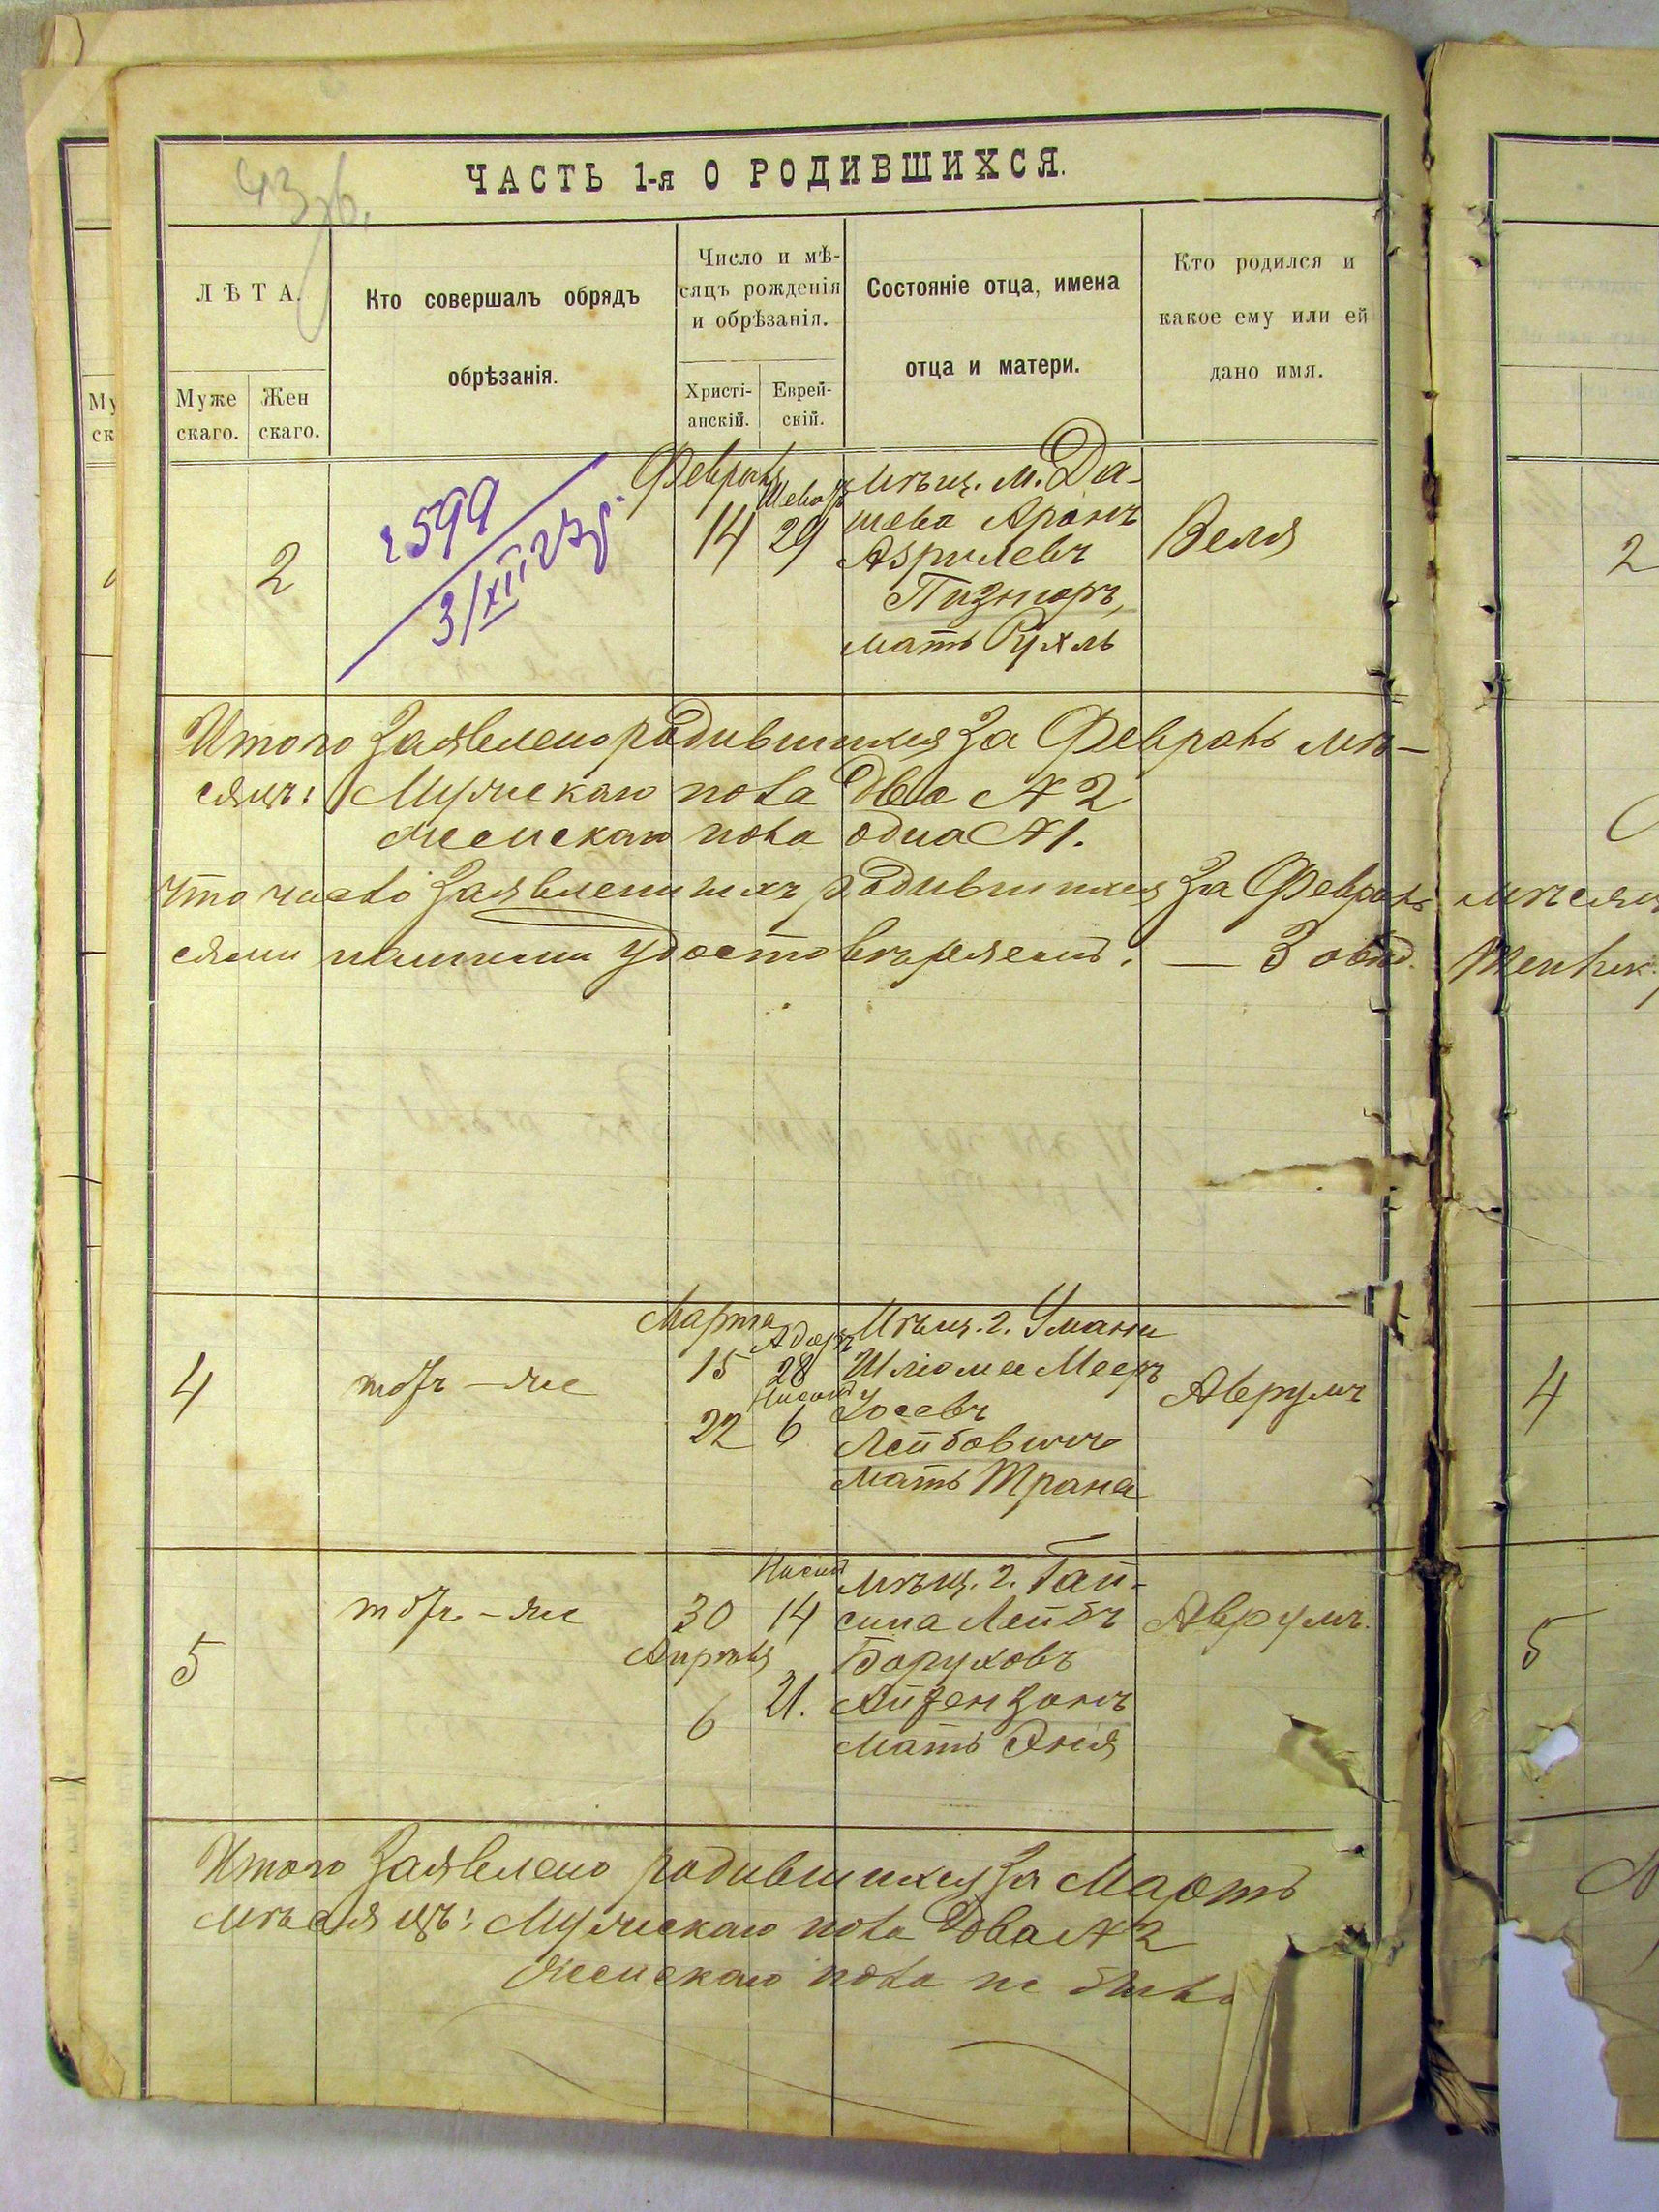 ЧАСТЬ 1-я О РОДИВШИХСЯ.
ЛѢТА.
Муже
скаго.
Жен
скаго.
Кто совершалъ обрядъ
обрѣзанія.
Число и мѣ-
сяцъ рожденія
и обрѣзанія.
Христі-
анскій.
Еврей-
скій.
Состояніе отца, имена
отца и матери.
Кто родился и
какое ему или ей
дано имя.
2
2599
3/XII 23г.
Февраль
14
Шеватъ
29
Мѣщ. м. Да-
шева Аронъ
Азрилевъ
Пизноръ,
мать Рухль
Веля
Итого заявлено родившихся за Февраль мѣ-
сяцъ: Мужескаго пола два № 2
Женскаго пола одна № 1.
Что число заявленныхъ родившихся за Февраль мѣсяц
сями нашими удостовѣряемъ. — Зобвд.
4
тотъ-же
Марта
15
22
Адаръ
28
Нисонъ
6
Мѣщ. г. Умани
Шліома Мееръ
Іосевъ
Лейбовичъ
мать Трана
Аврумъ
5
тотъ-же
30
Апрѣля
6
Нисонъ
14
21.
Мѣщ. г. Гай-
сина Лейбъ
Боруховъ
Айзензонъ
мать Эня
Аврумъ.
Итого заявлено родившихся за Мартъ
мѣсяцъ: Мужескаго пола два № 2
Женскаго пола не было
2
4
5